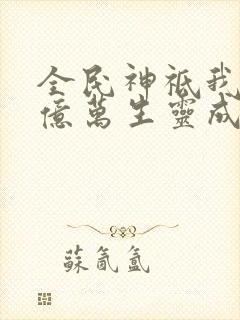 全民神祇我
億萬生靈成
蘇氤氳